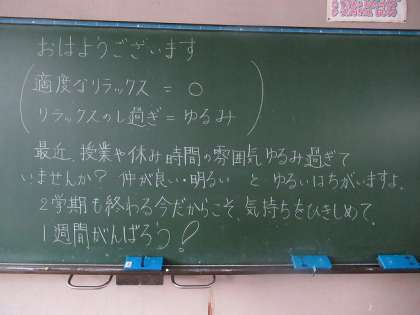 おはようございます
適度なリラックス = ○
リラックスのし過ぎ = ゆるみ
最近、授業や休み時間の雰囲気ゆるみ過ぎて
いませんか? 仲が良い・明るい と ゆるいはちがいますよ。
2学期も終わる今だからこそ、気持ちをひきしめて、
1週間がんばろう!